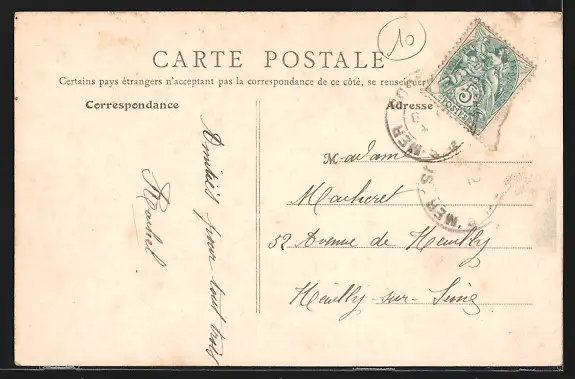 10
CARTE POSTALE
Certains pays étrangers n'acceptant pas la correspondance de ce côté, se renseigner
Correspondance
Adresse
Amitiés pour tout trois
Rachel
Madame
Macheret
52 Avenue de Neuilly
Neuilly-sur-Seine
5
POSTES
MER
MER